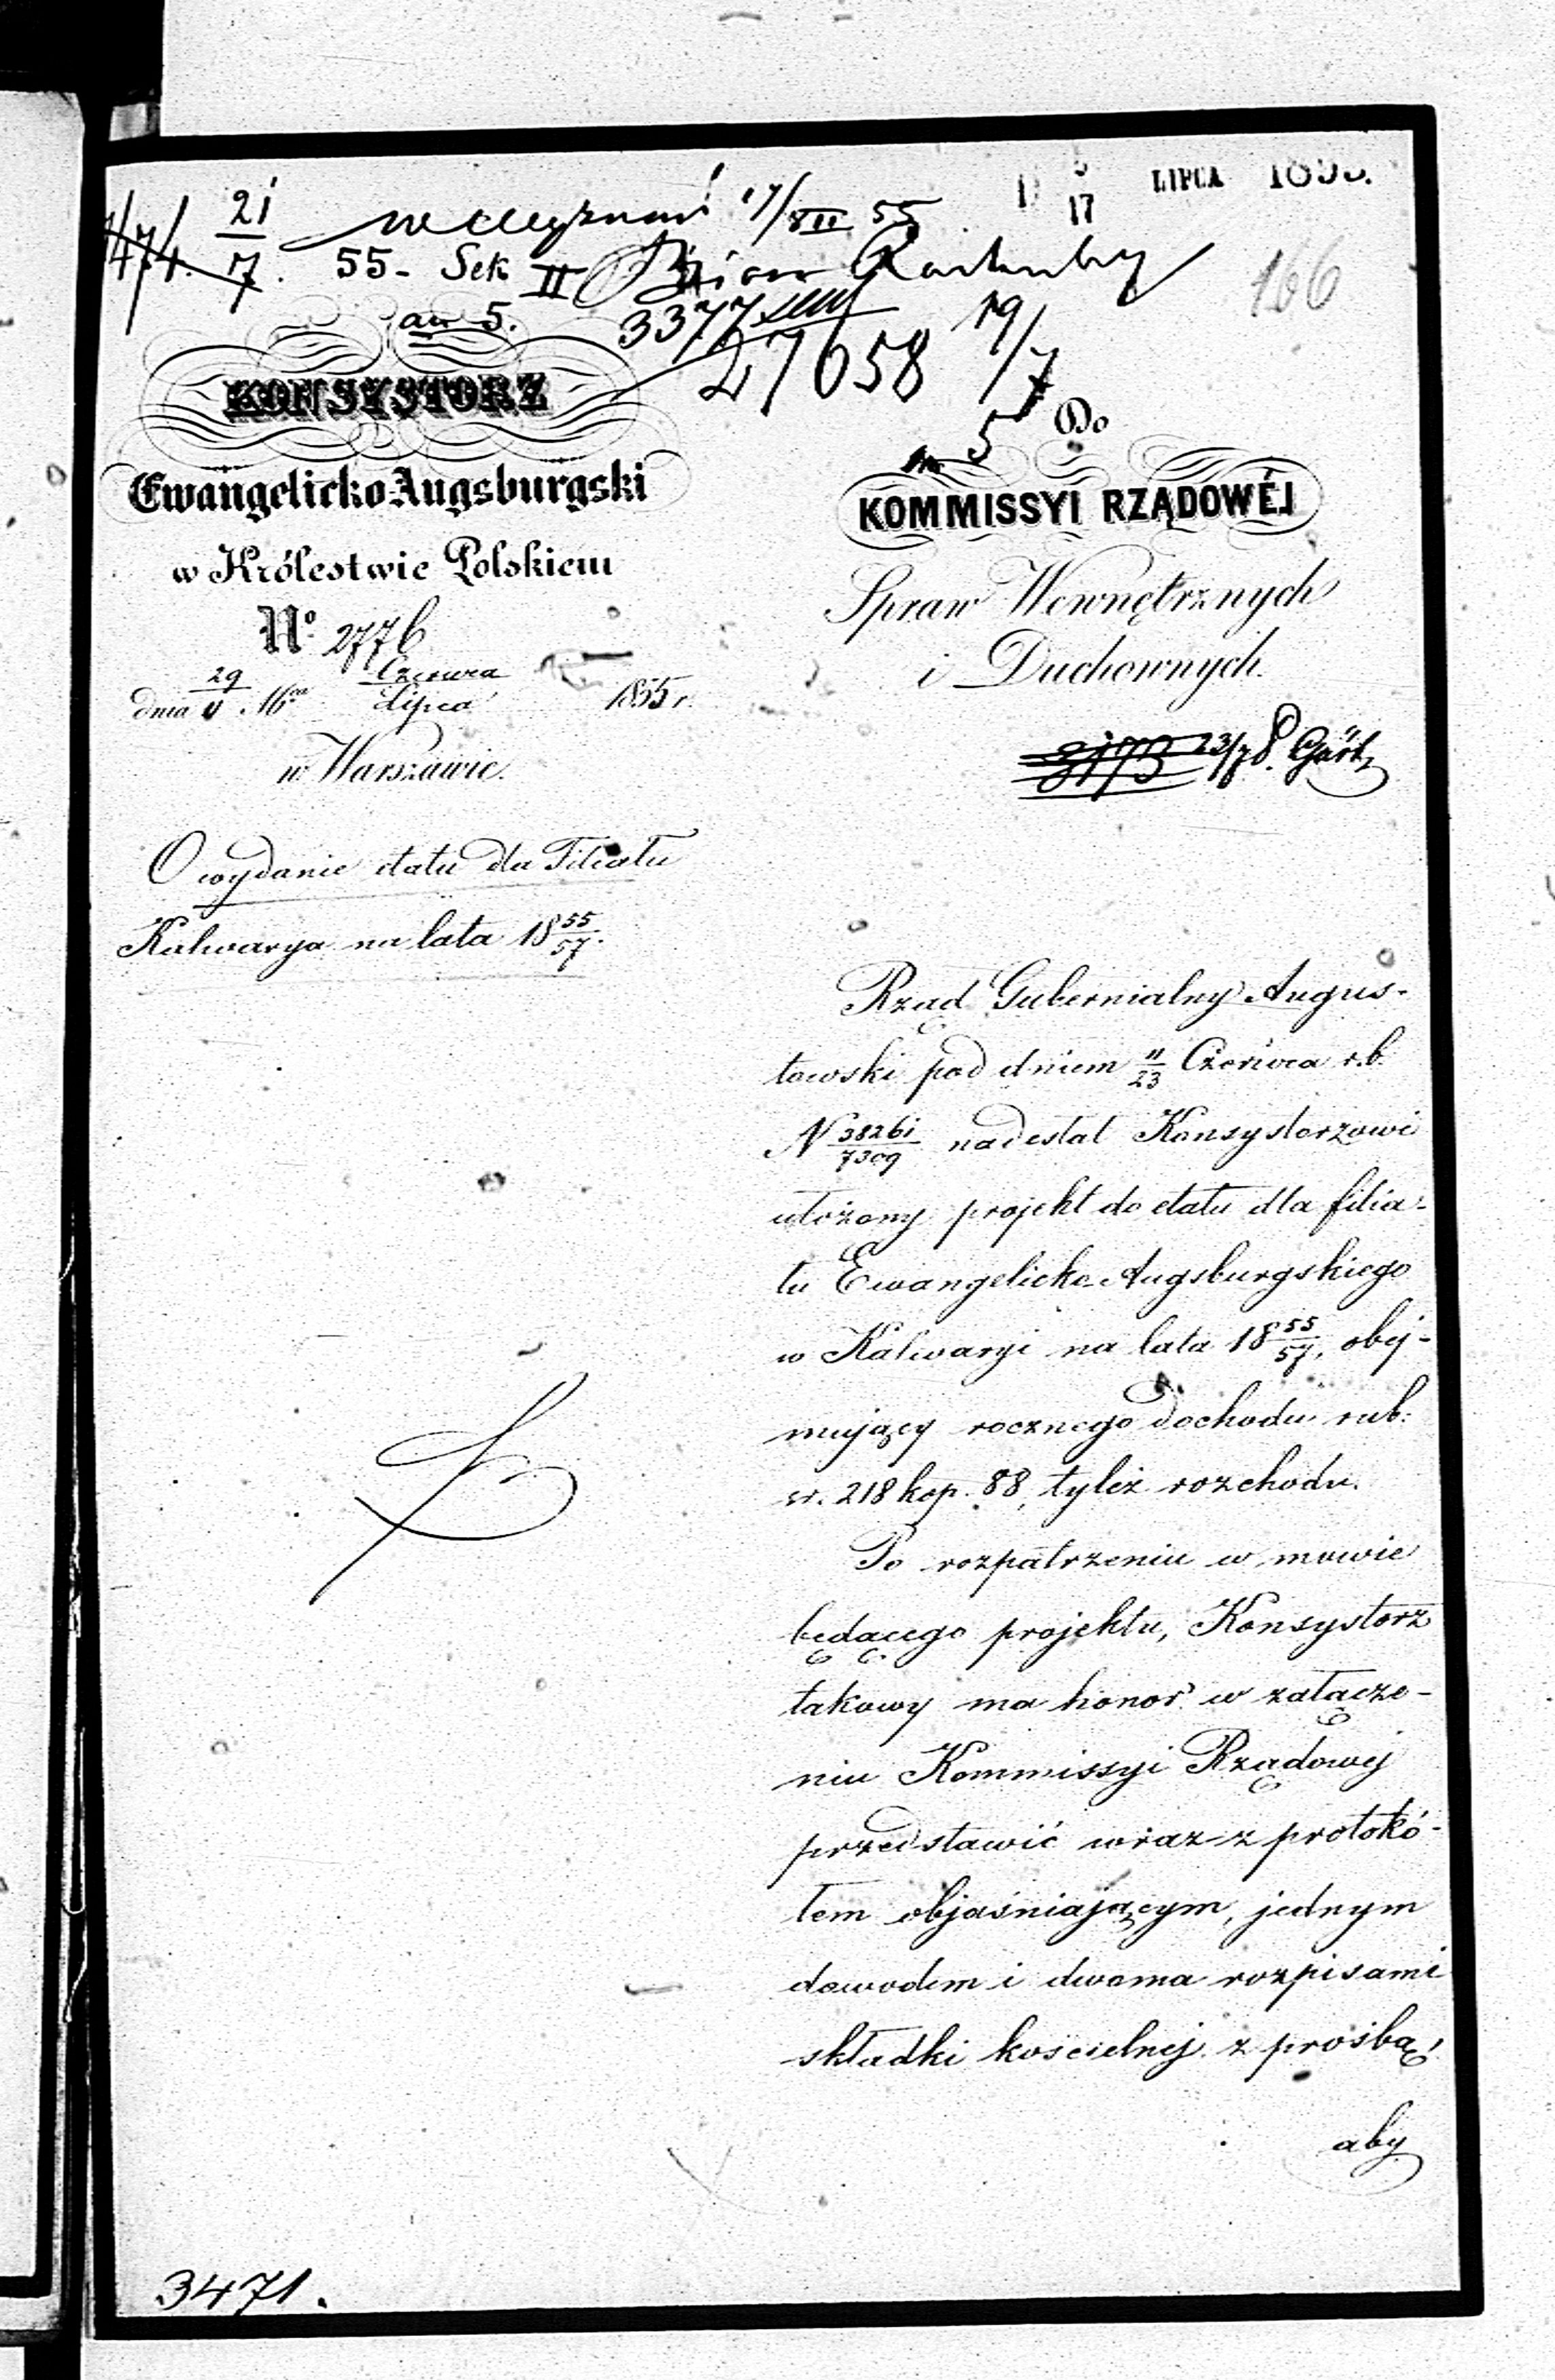 LIPCA 1855.
17
21
7. 55 - Sek II
17/VII 55
166
an 5.
3377
27658 19/7
5
KONSYSTORZ
Ewangelicko-Augsburgski
w Królestwie Polskiem
No. 2776
dnia 29/11 Mca Czerwca/Lipca 1855 r.
w Warszawie.
O wydanie etatu dla Filiału
Kalwarya na lata 18 55/57.
Do
KOMMISSYI RZĄDOWÉJ
Spraw Wewnętrznych
i Duchownych.
3173 23/7
Rząd Gubernialny Augus-
towski pod dniem 11/23 Czerwca r.b.
N 38261/7309 nadesłał Konsystorzowi
ułożony projekt do etatu dla filia-
łu Ewangelicko-Augsburgskiego
w Kalwaryi na lata 18 55/57, obej-
mujący rocznego dochodu rub:
sr. 218 kop. 88, tyleż rozchodu.
Po rozpatrzeniu w mowie
będącego projektu, Konsystorz
takowy ma honor w załącze-
niu Kommissyi Rządowej
przedstawić wraz z protokó-
łem objaśniającym, jednym
dowodem i dwoma rozpisami
składki kościelnej z prośbą,
aby
3471.